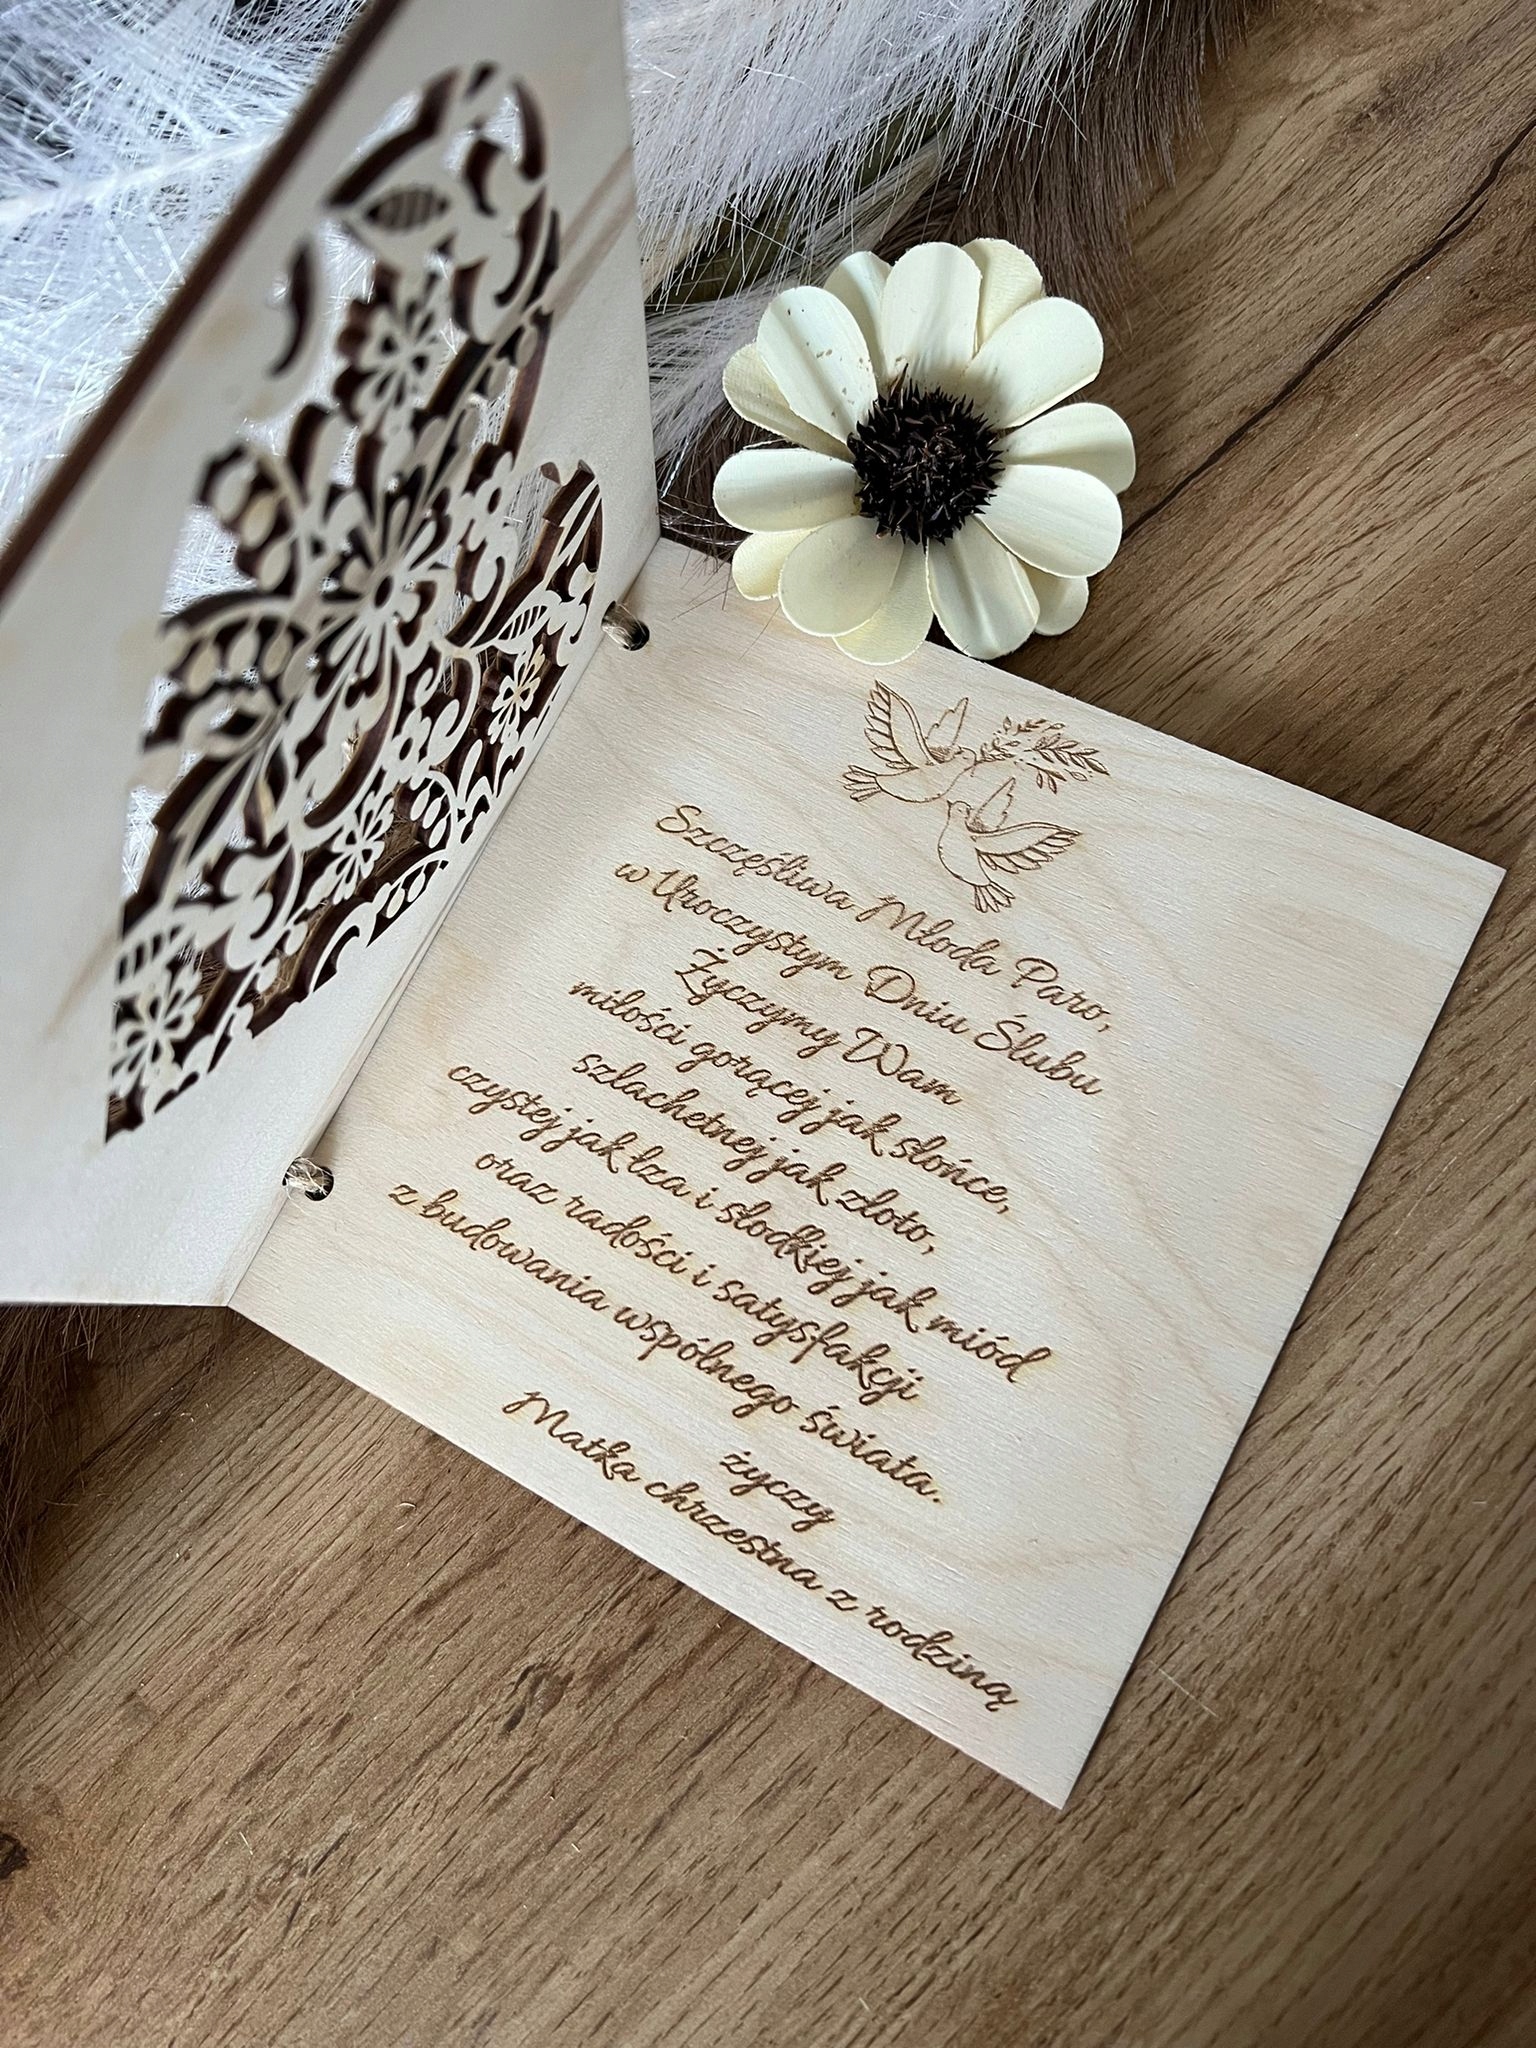 Szczęśliwa Młoda Paro,
w Uroczystym Dniu Ślubu
Życzymy Wam
miłości gorącej jak słońce,
szlachetnej jak złoto,
czystej jak łza i słodkiej jak miód
oraz radości i satysfakcji
z budowania wspólnego świata.
życzy
Matka chrzestna z rodziną